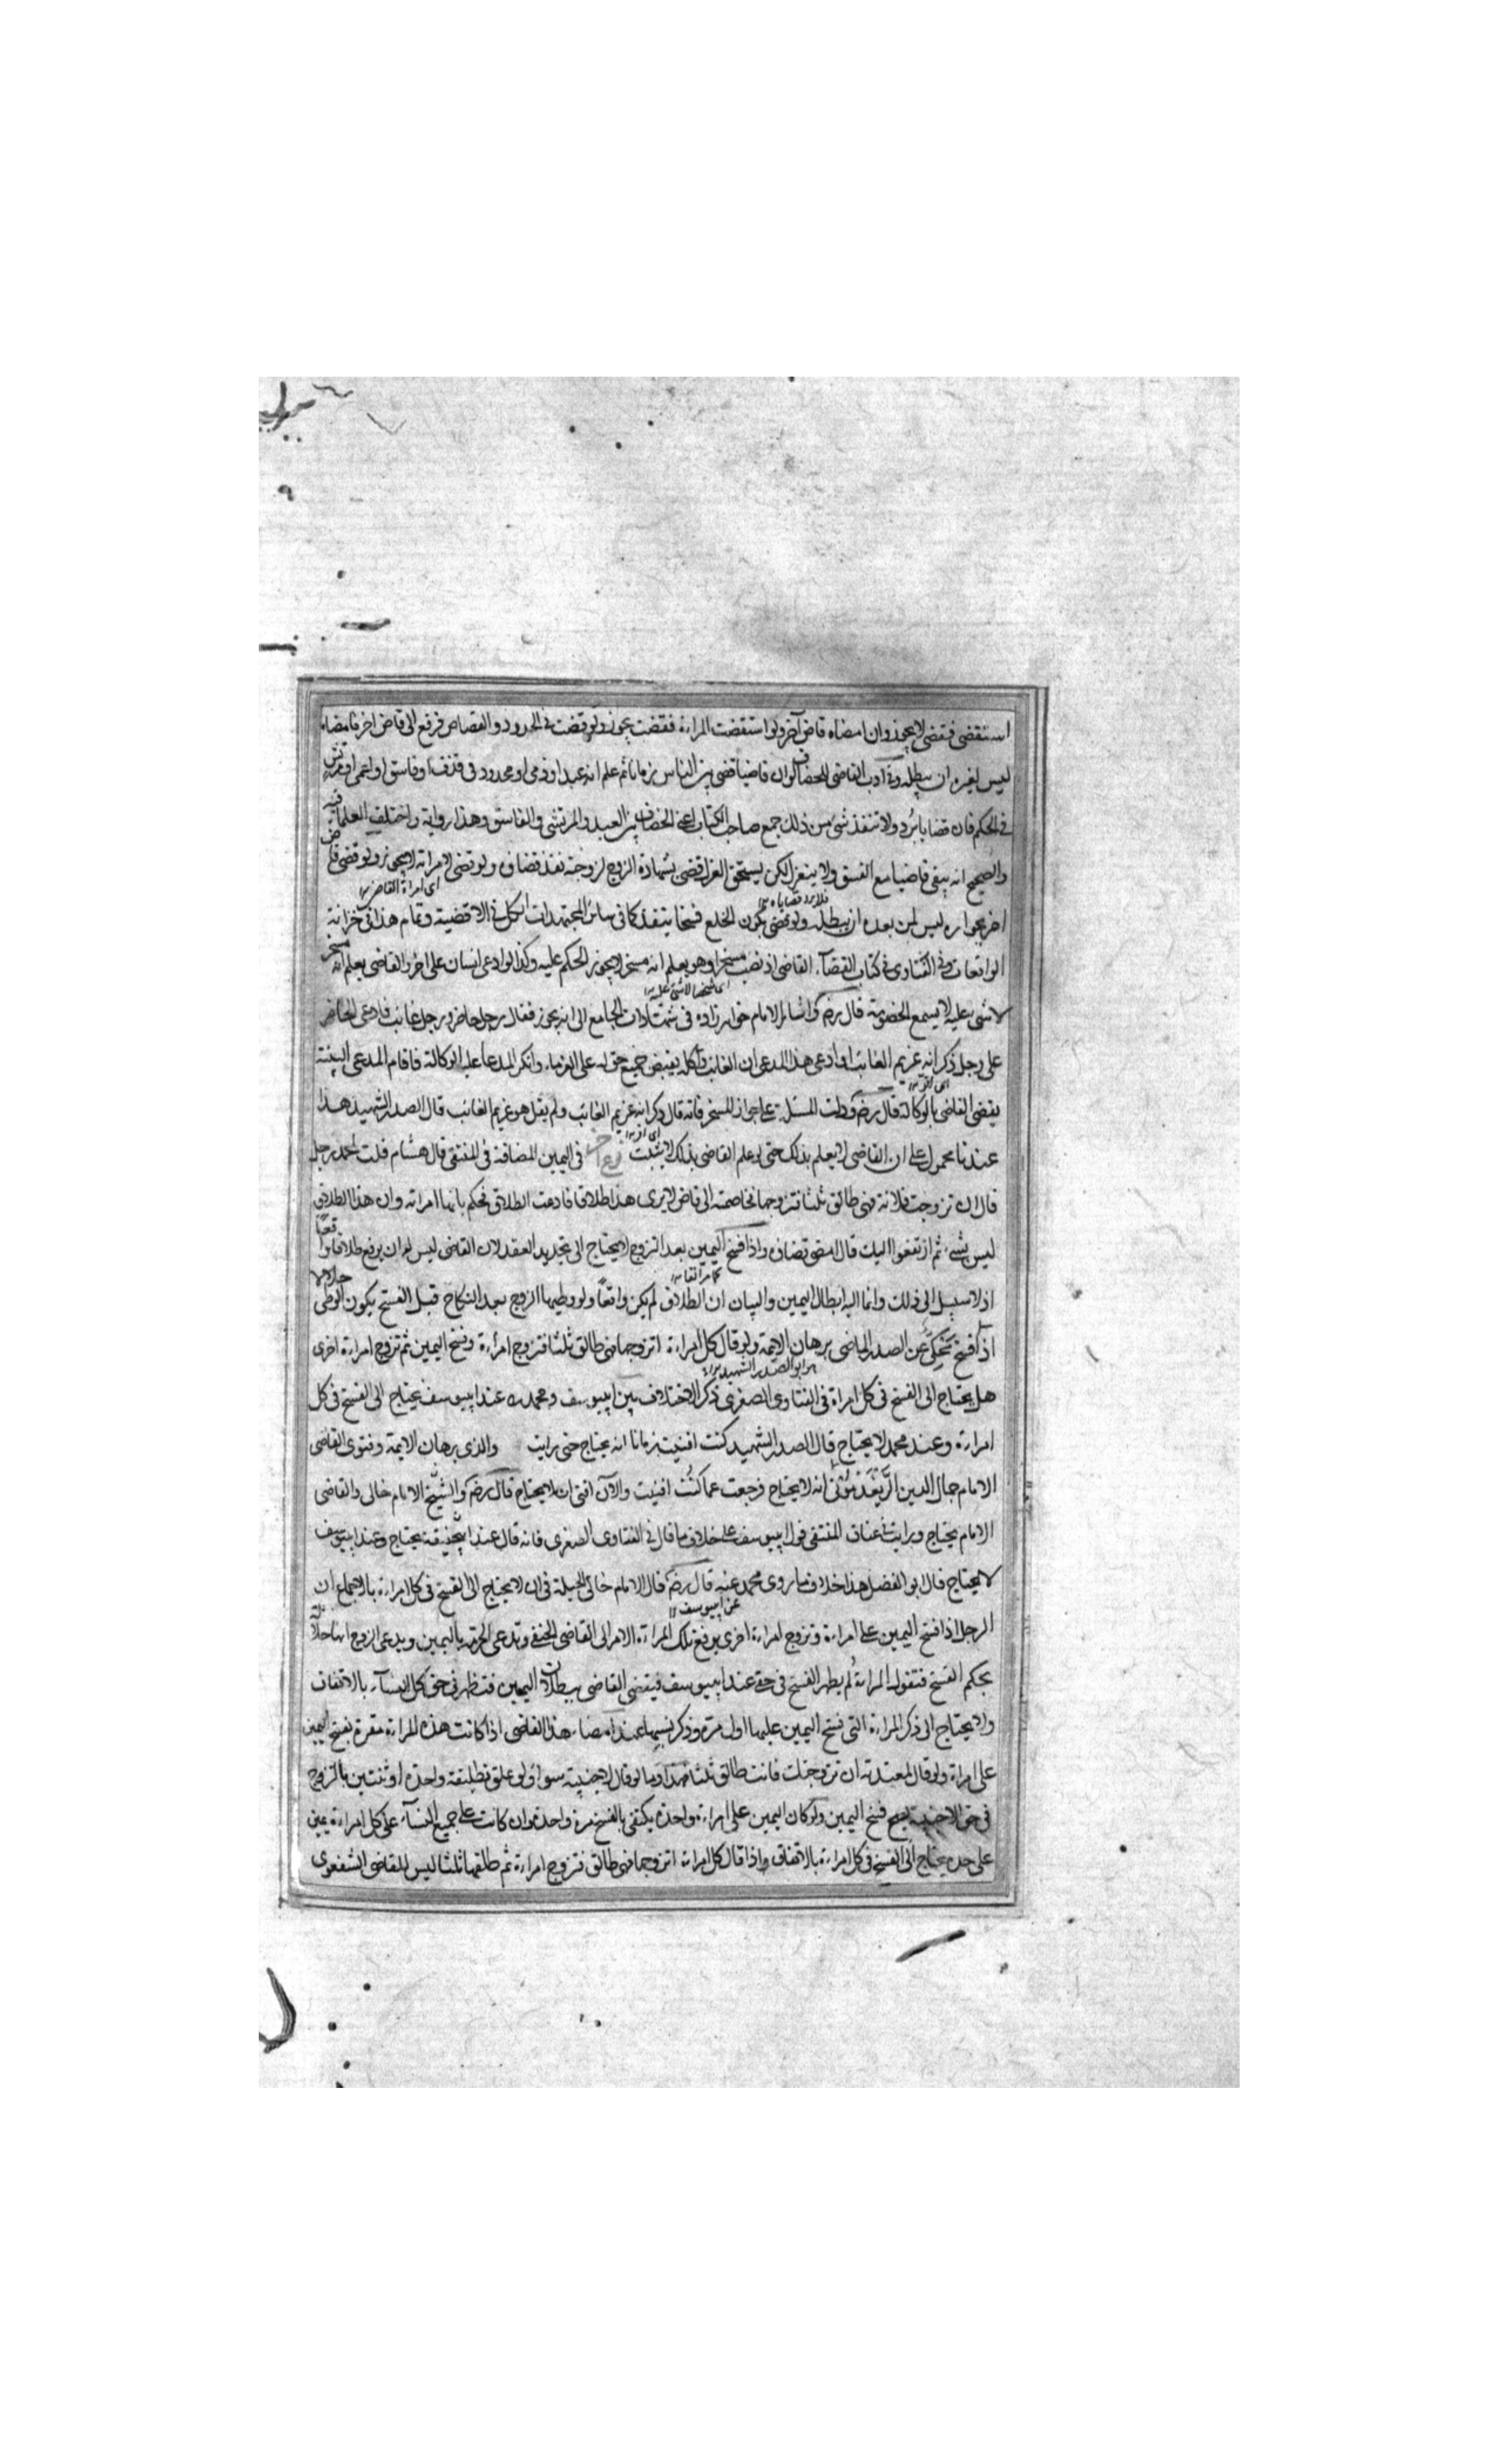 استقضى فقضى لا يجوز وان امضاه قاض آخر ولو استقضت المراءة فقضت يجوز ولو قضت فى الحدود والقصاص فرفع الى قاض اخر فامضاه
ليس لغيره ان يبطله وفى أدب القاضى للخصاف لو ان قاضيا قضى بين الناس زمانا ثم علم انه عبد او ذمى او محدود فى قذف او فاسق او اعمى او مرتش
فى الحكم فان قضايا ترد ولا تنفذ شئ من ذلك جمع صاحب الكتاب اعنى الخصاف بين العبد والمرتشى والفاسق وهذا رواية واختلف العلماء فيه
والصحيح انه يبقى قاضيا مع الفسق ولا ينعزل لكن يستحق العزل قضى بشهادة الزوج لزوجته نفذ قضاؤه ولو قضى لامراته لا يجوز ولو قضى قاض
اى امراة القاضى
فلا يرد قضاياه
اخر بجوازه ليس لمن بعده ان يبطله ولو قضى بكون الخلع فسخا ينفذ كما فى سائر المجتهدات الكل فى الاقضية وتمام هذا فى خزانة
الواقعات وفى الفتاوى فى كتاب القضآء القاضى اذ نصب مسخرا وهو يعلم انه مسخر لا يجوز الحكم عليه وكذا لو ادعى انسان على اخر والقاضى يعلم انه مسخر
لا شى عليه لا يسمع الخصومة قال رضه واشار الامام خواهرزاده فى شهادات الجامع الى انه يجوز فقال رجل حاضر ورجل غائب فادعى الحاضر
على رجل ذكر انه غريم الغائب اذ ادعى هذا المدعى ان الغائب وكله بقبض جميع حق له على الغرماء وانكر المدعا عليه الوكالة فاقام المدعى البينة
يقضى القاضى بالوكالة قال رضه ودلت المسئلة على جواز المسخر فانه قال ذكر انه غريم الغائب ولم يقل هو غريم الغائب قال الصدر الشهيد هذا
عندنا محمول على ان القاضى لا يعلم بذلك حتى لو علم القاضى بذلك لا يثبت فى اليمين المضافة فى المنتقى قال هشام قلت لمحمد رجل
قال ان تزوجت فلانة فهى طالق ثلثا فتزوجها فخاصمته الى قاض لا يرى هذا طلاقا فادعت الطلاق فحكم بانها امراته وان هذا الطلاق
ليس بشىء ثم ارتفعوا اليك قال امضى قضاؤه واذا فسخ اليمين بعد التزوج لا يحتاج الى تجديد العقد لان القاضى ليس له ان يرفع طلاقا واقعا
اذ لا سبيل الى ذلك وانما اليه ابطال اليمين والبيان ان الطلاق لم يكن واقعا ولو وطيها الزوج بعد النكاح قبل الفسخ يكون الوطى حلالا
اذ فسخ يحكى عن الصدر الماضى برهان الايمة ولو قال كل امراءة اتزوجها فهى طالق ثلثا فتزوج امراءة وفسخ اليمين ثم تزوج امراءة اخرى
هو ابو الصدر الشهيد
هل يحتاج الى الفسخ فى كل امراة فى الفتاوى الصغرى ذكر الاختلاف بين ابيوسف ومحمد عند ابيوسف يحتاج الى الفسخ فى كل
امراءة وعند محمد لا يحتاج قال الصدر الشهيد كنت افتيت زمانا انه يحتاج حتى رايت والدى برهان الايمة وفتوى القاضى
الامام جمال الدين الريغدمونى انه لا يحتاج فرجعت عما كنت افتيت والآن افتى ان لا يحتاج قال رضه والشيخ الامام خالى والقاضى
الامام يحتاج ورايت فى عتاق المنتقى قول ابيوسف على خلاف ما قال فى الفتاوى الصغرى فانه قال عند ابيحنيفة يحتاج وعند ابيوسف
لا يحتاج قال ابو الفضل هذا خلاف ما روى محمد عنه قال رضه قال الامام خالى الحيلة فى ان لا يحتاج الى الفسخ فى كل امراءة بالاجماع ان
عن ابيوسف
الرجل اذا فسخ اليمين على امراءة وتزوج امراءة اخرى يرفع تلك المراءة الامر الى القاضى الحنفى وتدعى الحرمة باليمين ويدعى الزوج انها حلالة
بحكم الفسخ فتقول المراة لم يظهر الفسخ فى حق عند ابيوسف فيقضى القاضى ببطلان اليمين فتظهر فى حق كل النسآء بالاتفاق
ولا يحتاج الى ذكر المراءة التى فسخ اليمين عليها اول مرة وذكر نسبها عند امضاء هذا القاضى اذا كانت هذه المراءة مقرة بفسخ اليمين
على امراة ولو قال لمعتدته ان تزوجتك فانت طالق ثلثا فهذا وما لو قال لاجنبية سواء ولو علق تطليقة واحدة او ثنتين بالتزوج
فى حق الاجنبية يصح فسخ اليمين ولو كان اليمين على امراءة واحدة يكتفى بالفسخ مرة واحدة وان كانت على جميع النسآء على كل امراءة يمين
على حدة يحتاج الى الفسخ فى كل امراءة بالاتفاق واذا قال كل امراة اتزوجها فهى طالق فتزوج امراءة ثم طلقها ثلثا ليس للقاضى الشفعوى